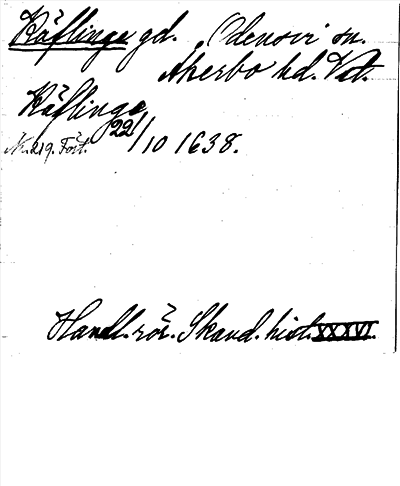 Käflinge gd. Odensvi sn.
Åkerbo hd. Vstm.
Käflinge,
22/10 1638.
N. 219. Fört.
Handl. rör. Skand. hist. XXXVI.